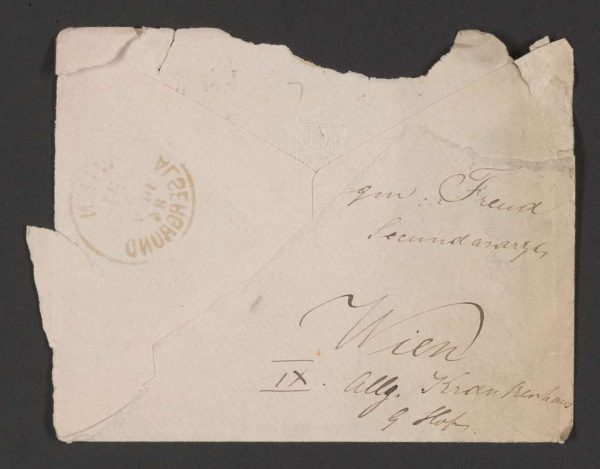 ALSERGRUND
Freud
Secundararzt
Wien
IX. Allg. Krankenhaus
9 Hof.